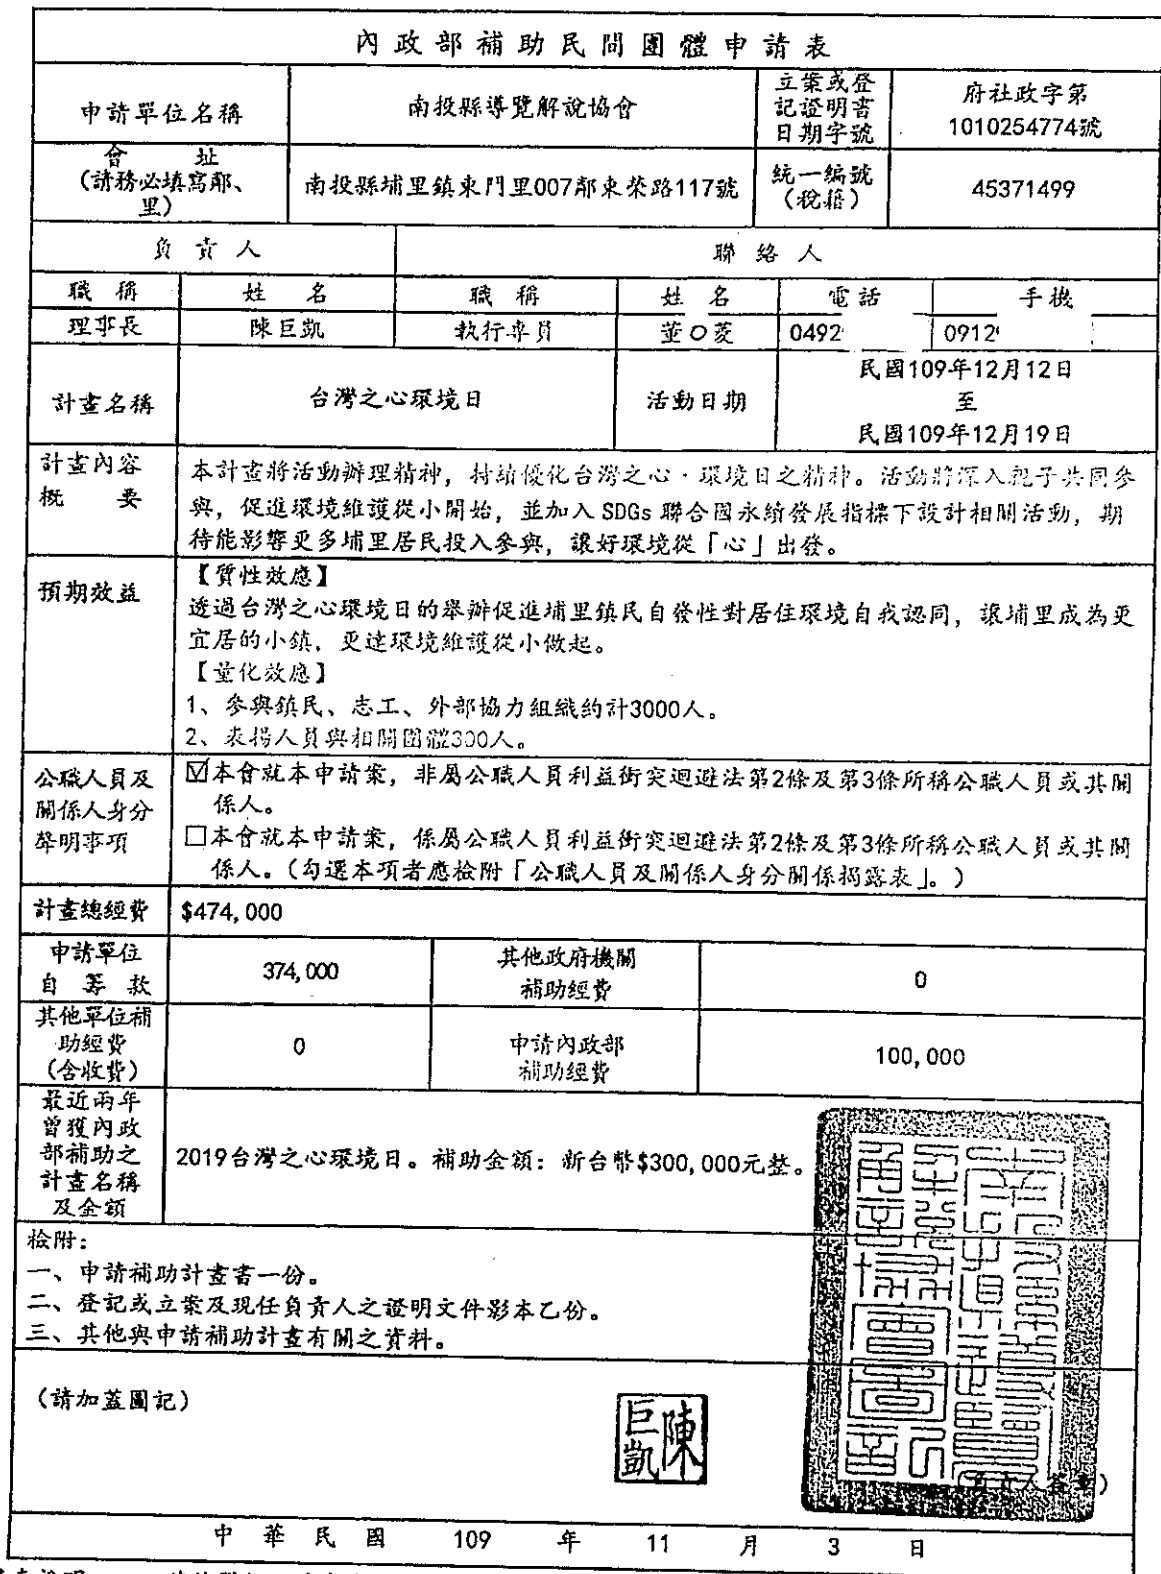 內政部補助民間團體申請表
申請單位名稱
南投縣導覽解說協會
立案或登
記證明書
日期字號
府社政字第
1010254774號
會 址
(請務必填寫鄰、
里)
南投縣埔里鎮東門里007鄰東榮路117號
統一編號
(稅籍)
45371499
負責人
聯絡人
職稱 姓名 職稱 姓名 電話 手機
理事長 陳巨凱 執行專員 董○菱 0492 0912
計畫名稱
台灣之心環境日
活動日期
民國109年12月12日
至
民國109年12月19日
計畫內容
概 要
本計畫將活動辦理精神，持續優化台灣之心‧環境日之精神。活動將深入親子共同參
與，促進環境維護從小開始，並加入SDGs聯合國永續發展指標下設計相關活動，期
待能影響更多埔里居民投入參與，讓好環境從「心」出發。
預期效益
【質性效應】
透過台灣之心環境日的舉辦促進埔里鎮民自發性對居住環境自我認同，讓埔里成為更
宜居的小鎮，更達環境維護從小做起。
【量化效應】
1、參與鎮民、志工、外部協力組織約計3000人。
2、表揚人員與相關團體300人。
公職人員及
關係人身分
聲明事項
☑本會就本申請案，非屬公職人員利益衝突迴避法第2條及第3條所稱公職人員或其關
係人。
□本會就本申請案，係屬公職人員利益衝突迴避法第2條及第3條所稱公職人員或其關
係人。(勾選本項者應檢附「公職人員及關係人身分關係揭露表」。)
計畫總經費
$474,000
申請單位
自籌款
374,000
其他政府機關
補助經費
0
其他單位補
助經費
(含收費)
0
申請內政部
補助經費
100,000
最近兩年
曾獲內政
部補助之
計畫名稱
及金額
2019台灣之心環境日。補助金額：新台幣$300,000元整。
檢附：
一、申請補助計畫書一份。
二、登記或立案及現任負責人之證明文件影本乙份。
三、其他與申請補助計畫有關之資料。
(請加蓋圖記)
陳巨凱
(負責人簽章)
中華民國 109 年 11 月 3 日